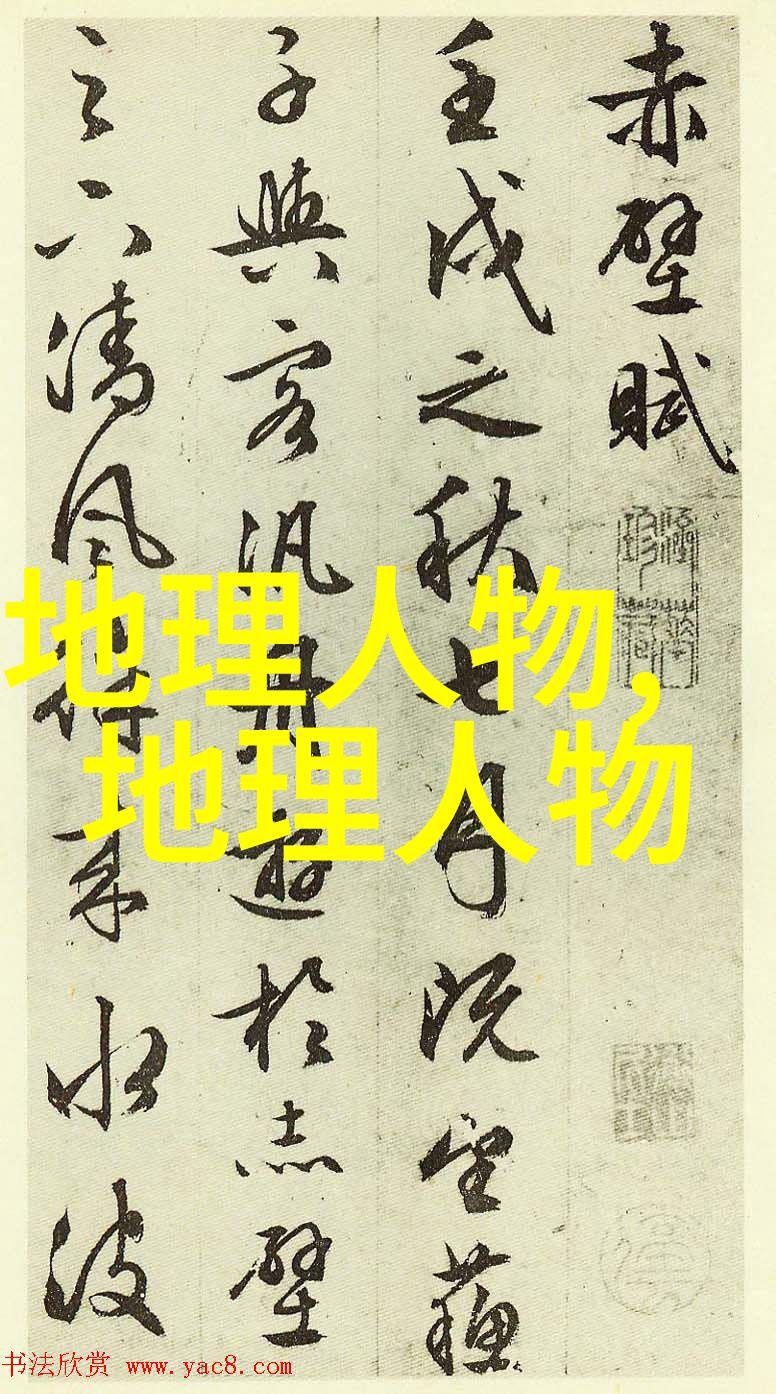 赤壁賦
壬戌之秋七月既望蘇
子與客汎舟遊於赤壁
之下清風徐來水波
地理人物,
地理人物
书法欣赏 www.yac8.com